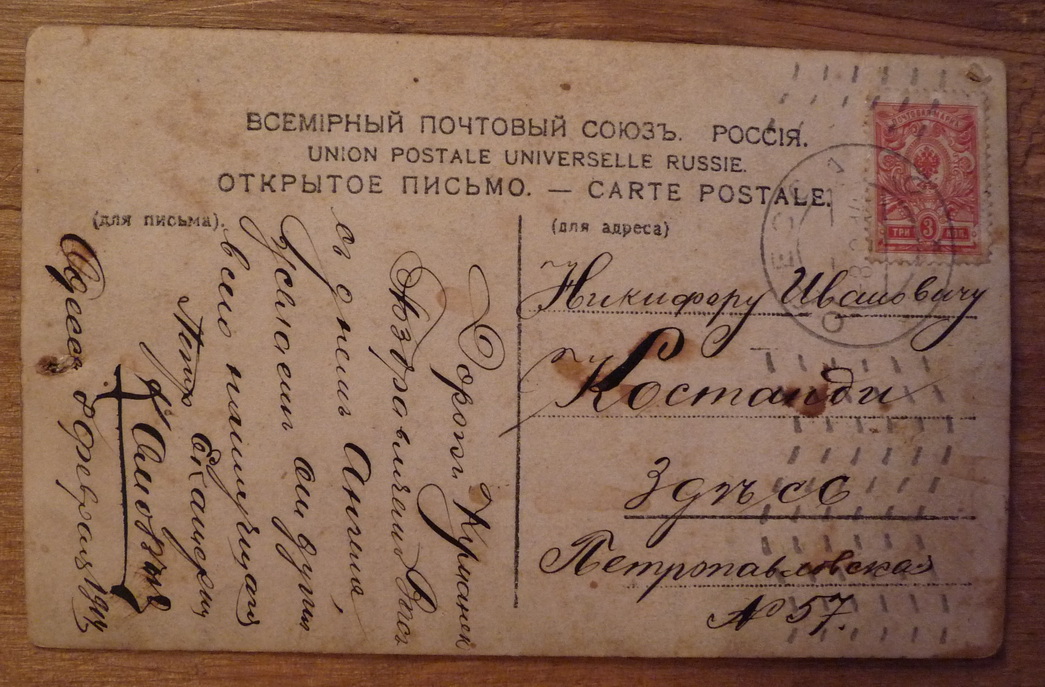 ВСЕМІРНЫЙ ПОЧТОВЫЙ СОЮЗЪ. РОССІЯ.
UNION POSTALE UNIVERSELLE RUSSIE.
ОТКРЫТОЕ ПИСЬМО. — CARTE POSTALE.
(для письма).
Дорог. Крыснек
Поздравляем Вас
съ днемъ Ангела,
Желаем от души
всего наилучшаго
Петръ Екатерин
Одесса 8 февраля 1914
(для адреса)
Никифору Ивановичу
Костанди
Здѣсь
Петропавловская
№ 57.
ТРИ 3 КОП